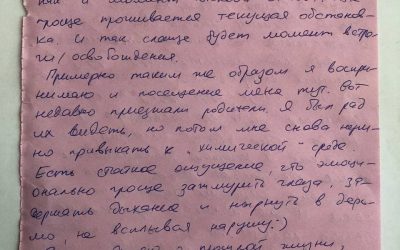 проще проживается текущая обстанов-
ка. И тем слаще будет момент встре-
чи / освобождения.
Примерно таким же образом я воспри-
нимаю и посещение меня тут. Вот
недавно приезжали родители. Я был рад
их видеть, но потом мне снова нуж-
но привыкать к "химической" среде.
Есть стойкое ощущение, что эмоци-
онально проще зажмурить глаза, за-
держать дыхание и нырнуть в дерь-
мо, не всплывая наружу:)
жизни,